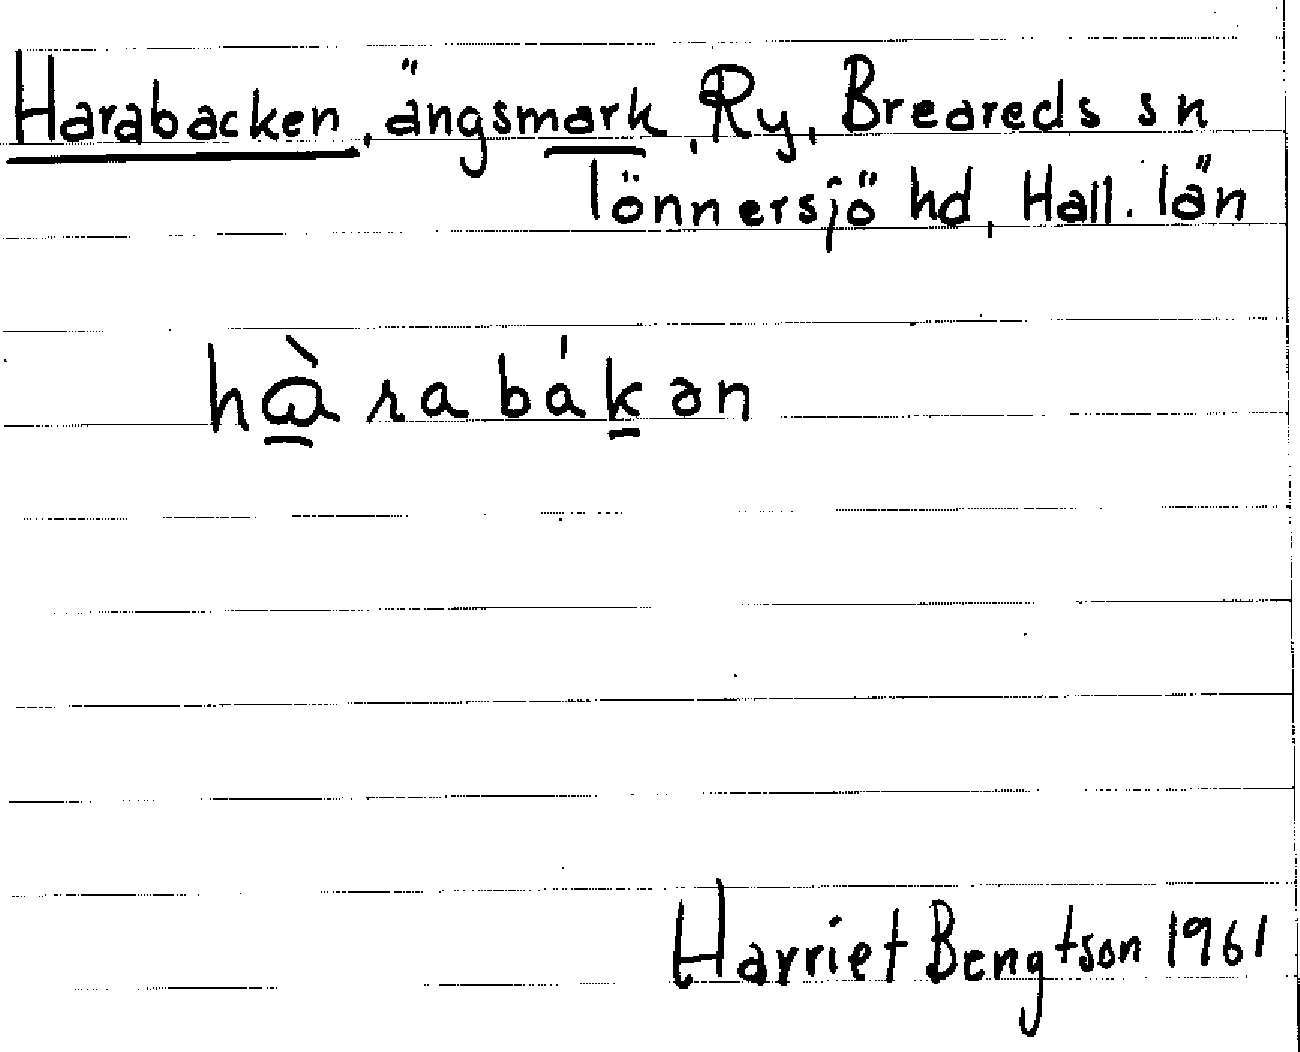 Harabacken, ängsmark, Ry, Breareds sn
Tönnersjö hd, Hall. län
hàrabákən
Harriet Bengtson 1961